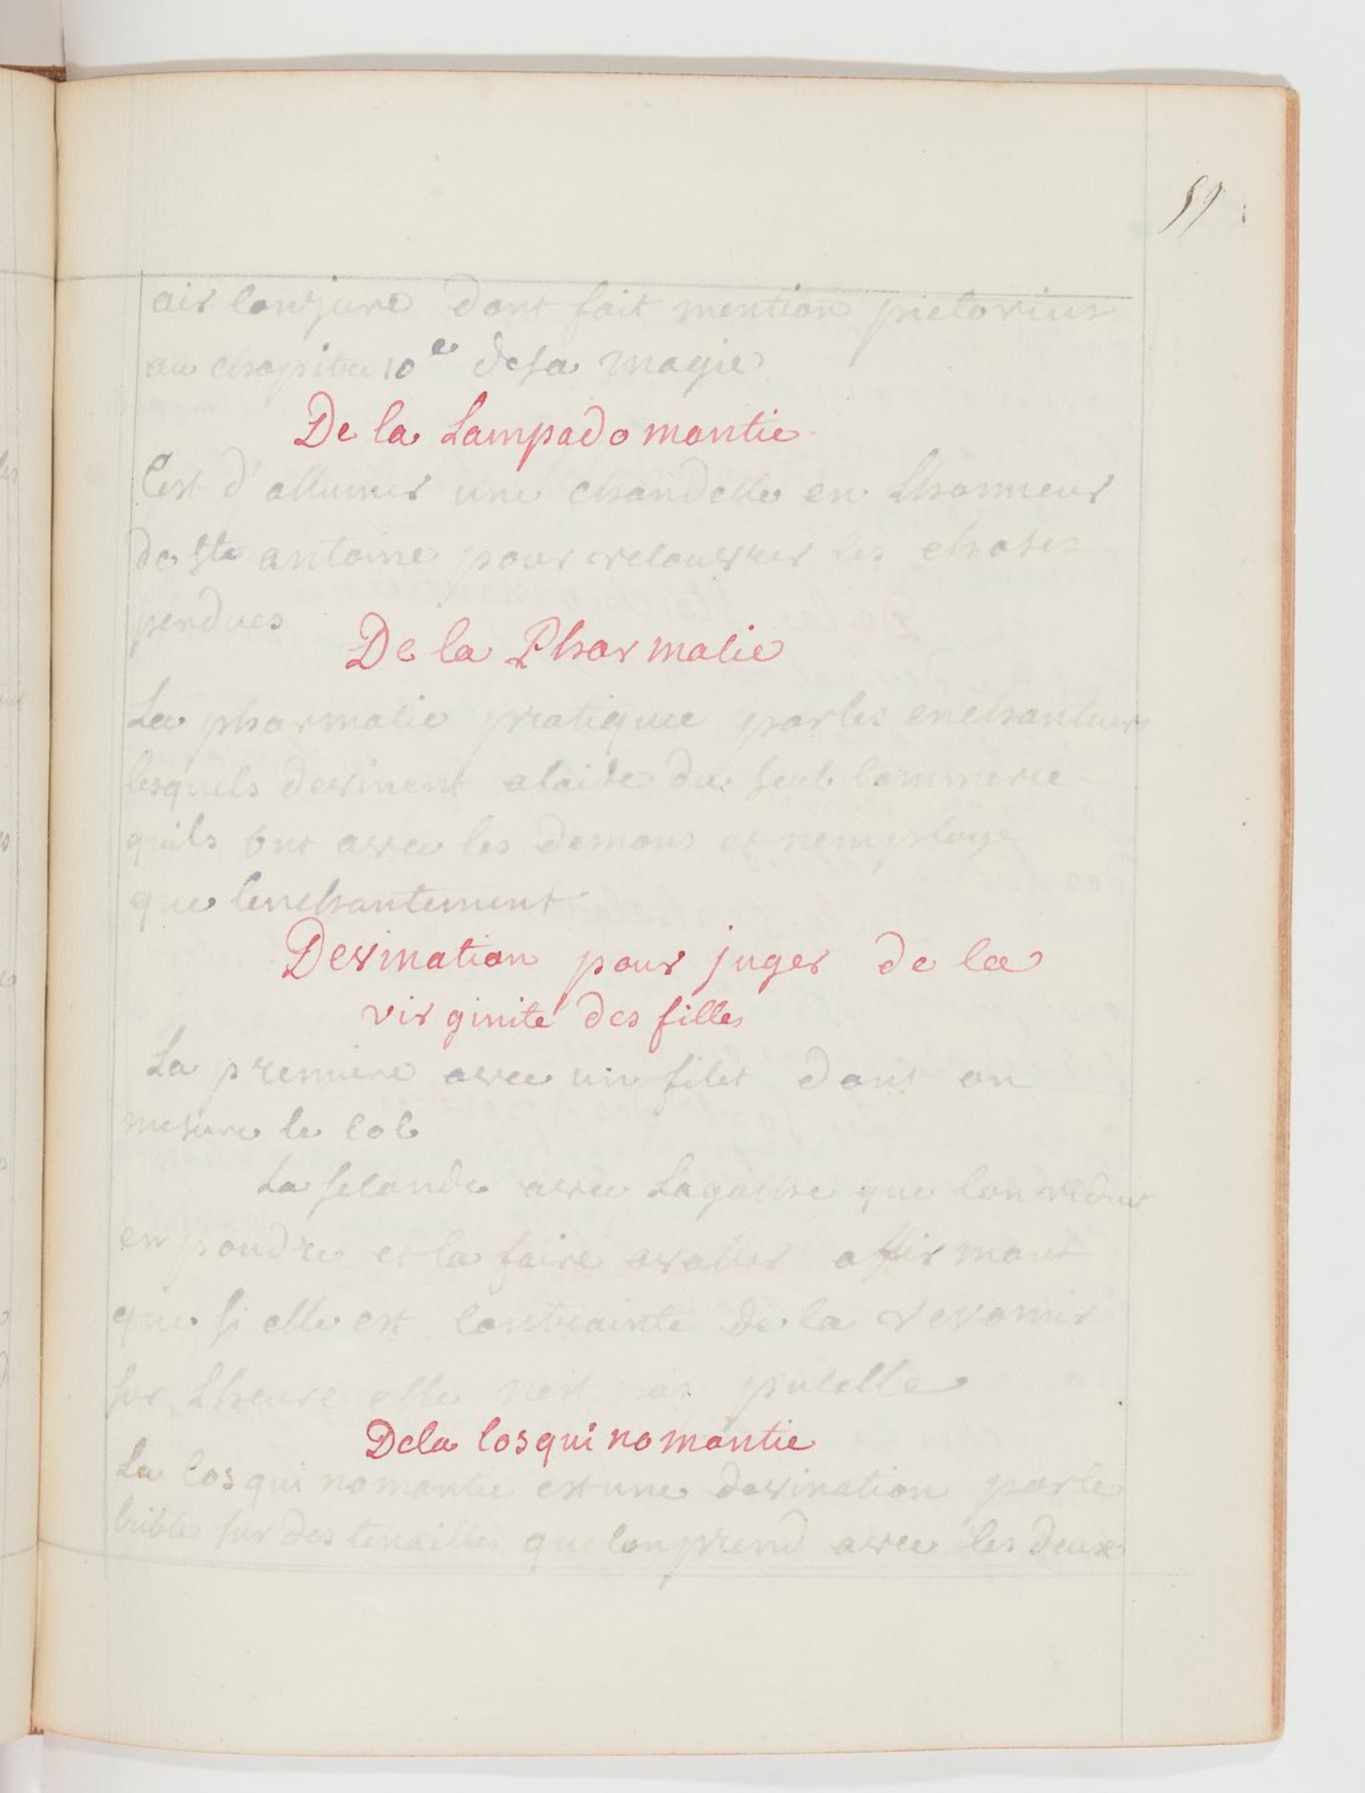 59
air conjure dont fait mention pictorius
au chapitre 10e de sa magie
De la Lampadomantie
C'est d'allumer une chandelle en Lhonneur
de ste antoine pour retouvrer les choses
perdues
De la Pharmacie
La pharmacie pratiquee par les enchanteurs
lesquels devinent alaide du seul commerce
quils ont avec les demons et nemploye
que lenchantement
Devination pour juger de la
virginite des filles
La premiere avec un filet dont on
mesure le col
La seconde avec Lagathe que lon reduit
en poudre et la faire avaller affirmant
que si elle est contrainte de la revomir
sur Lheure elle nest pas pucelle
De la cosquinomantie
La cosquinomantie est une devination par le
crible sur des tenailles que lon prend avec les deux